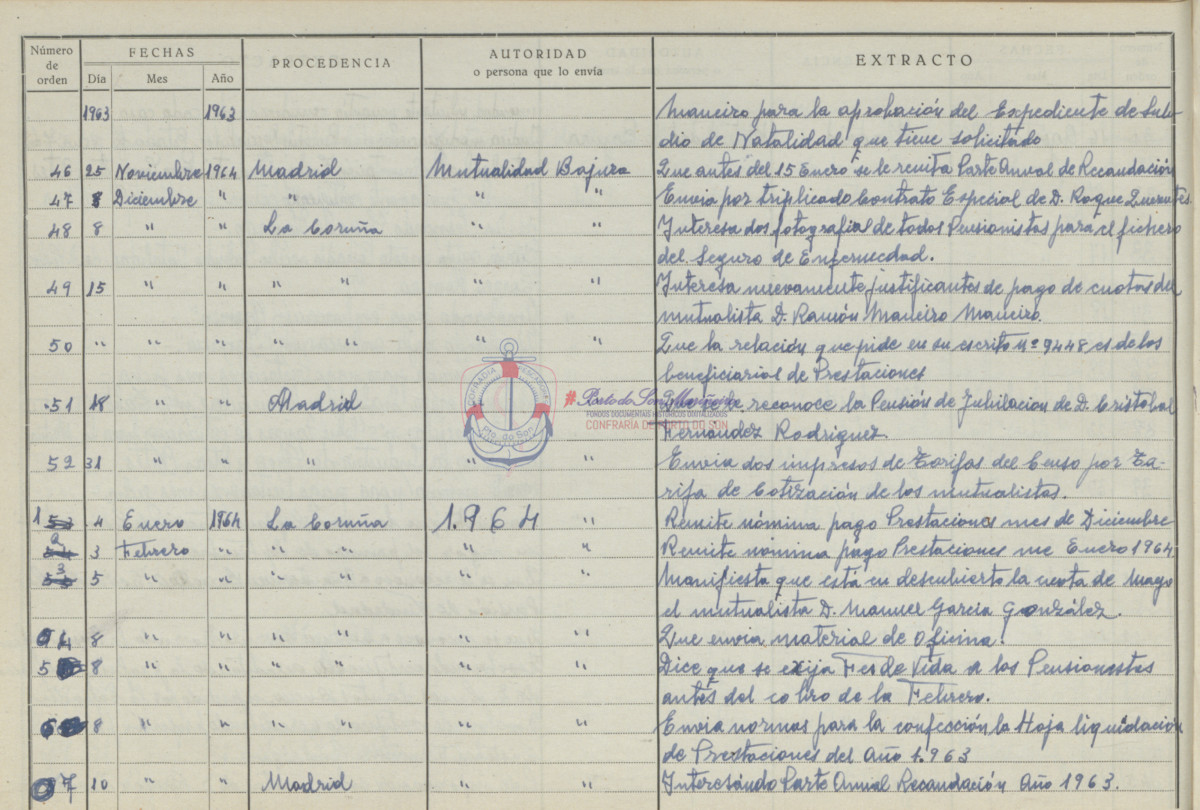 Número de orden FECHAS Día Mes Año PROCEDENCIA AUTORIDAD o persona que lo envía EXTRACTO
1963 1963 Maneiro para la aprobación del Expediente de Subsi
dio de Natalidad que tiene solicitado
46 25 Noviembre 1964 Madrid Mutualidad Bajura Que antes del 15 Enero se le remita Parte Anual de Recaudación
47 8 Diciembre " " " " Envia por triplicado Contrato Especial de D. Roque
48 8 " " La Coruña " " Interesa dos fotografias de todos Pensionistas para el fichero
del Seguro de Enfermedad.
49 15 " " " " " " Interesa nuevamente justificantes de pago de cuotas del
mutualista D. Ramón Maneiro Maneiro.
50 " " " " " " " Que la relación que pide en su escrito nº 9448 es de los
beneficiarios de Prestaciones
51 18 " " Madrid se le reconoce la Pensión de Jubilacion de D. Cristobal
Hernandez Rodriguez.
52 31 " " " " " Envia dos impresos de Tarifas del Censo por Ta-
rifa de Cotización de los mutualistas.
1 4 Enero 1964 La Coruña 1.964 " Remite nómina pago Prestaciones mes de Diciembre
2 3 Febrero " " " " " Remite nómina pago Prestaciones me Enero 1964
3 5 " " " " " " Manifiesta que está en descubierto la cuota de Mayo
el mutualista D. Manuel Garcia González.
4 8 " " " " " " Que envia material de oficina.
5 8 " " " " " " Dice que se exija Fes de Vida a los Pensionistas
antes del cobro de la Febrero.
6 8 " " " " " " Envia normas para la confección la Hoja liquidación
de Prestaciones del Año 1.963
7 10 " " Madrid " " Interesando Parte Anual Recaudación Año 1963.
COFRADIA DE PESCADORES
Pto. do Son
#Porto do Son Mariñeiro
FONDOS DOCUMENTAIS HISTÓRICOS DIXITALIZADOS
CONFRARÍA DE PORTO DO SON